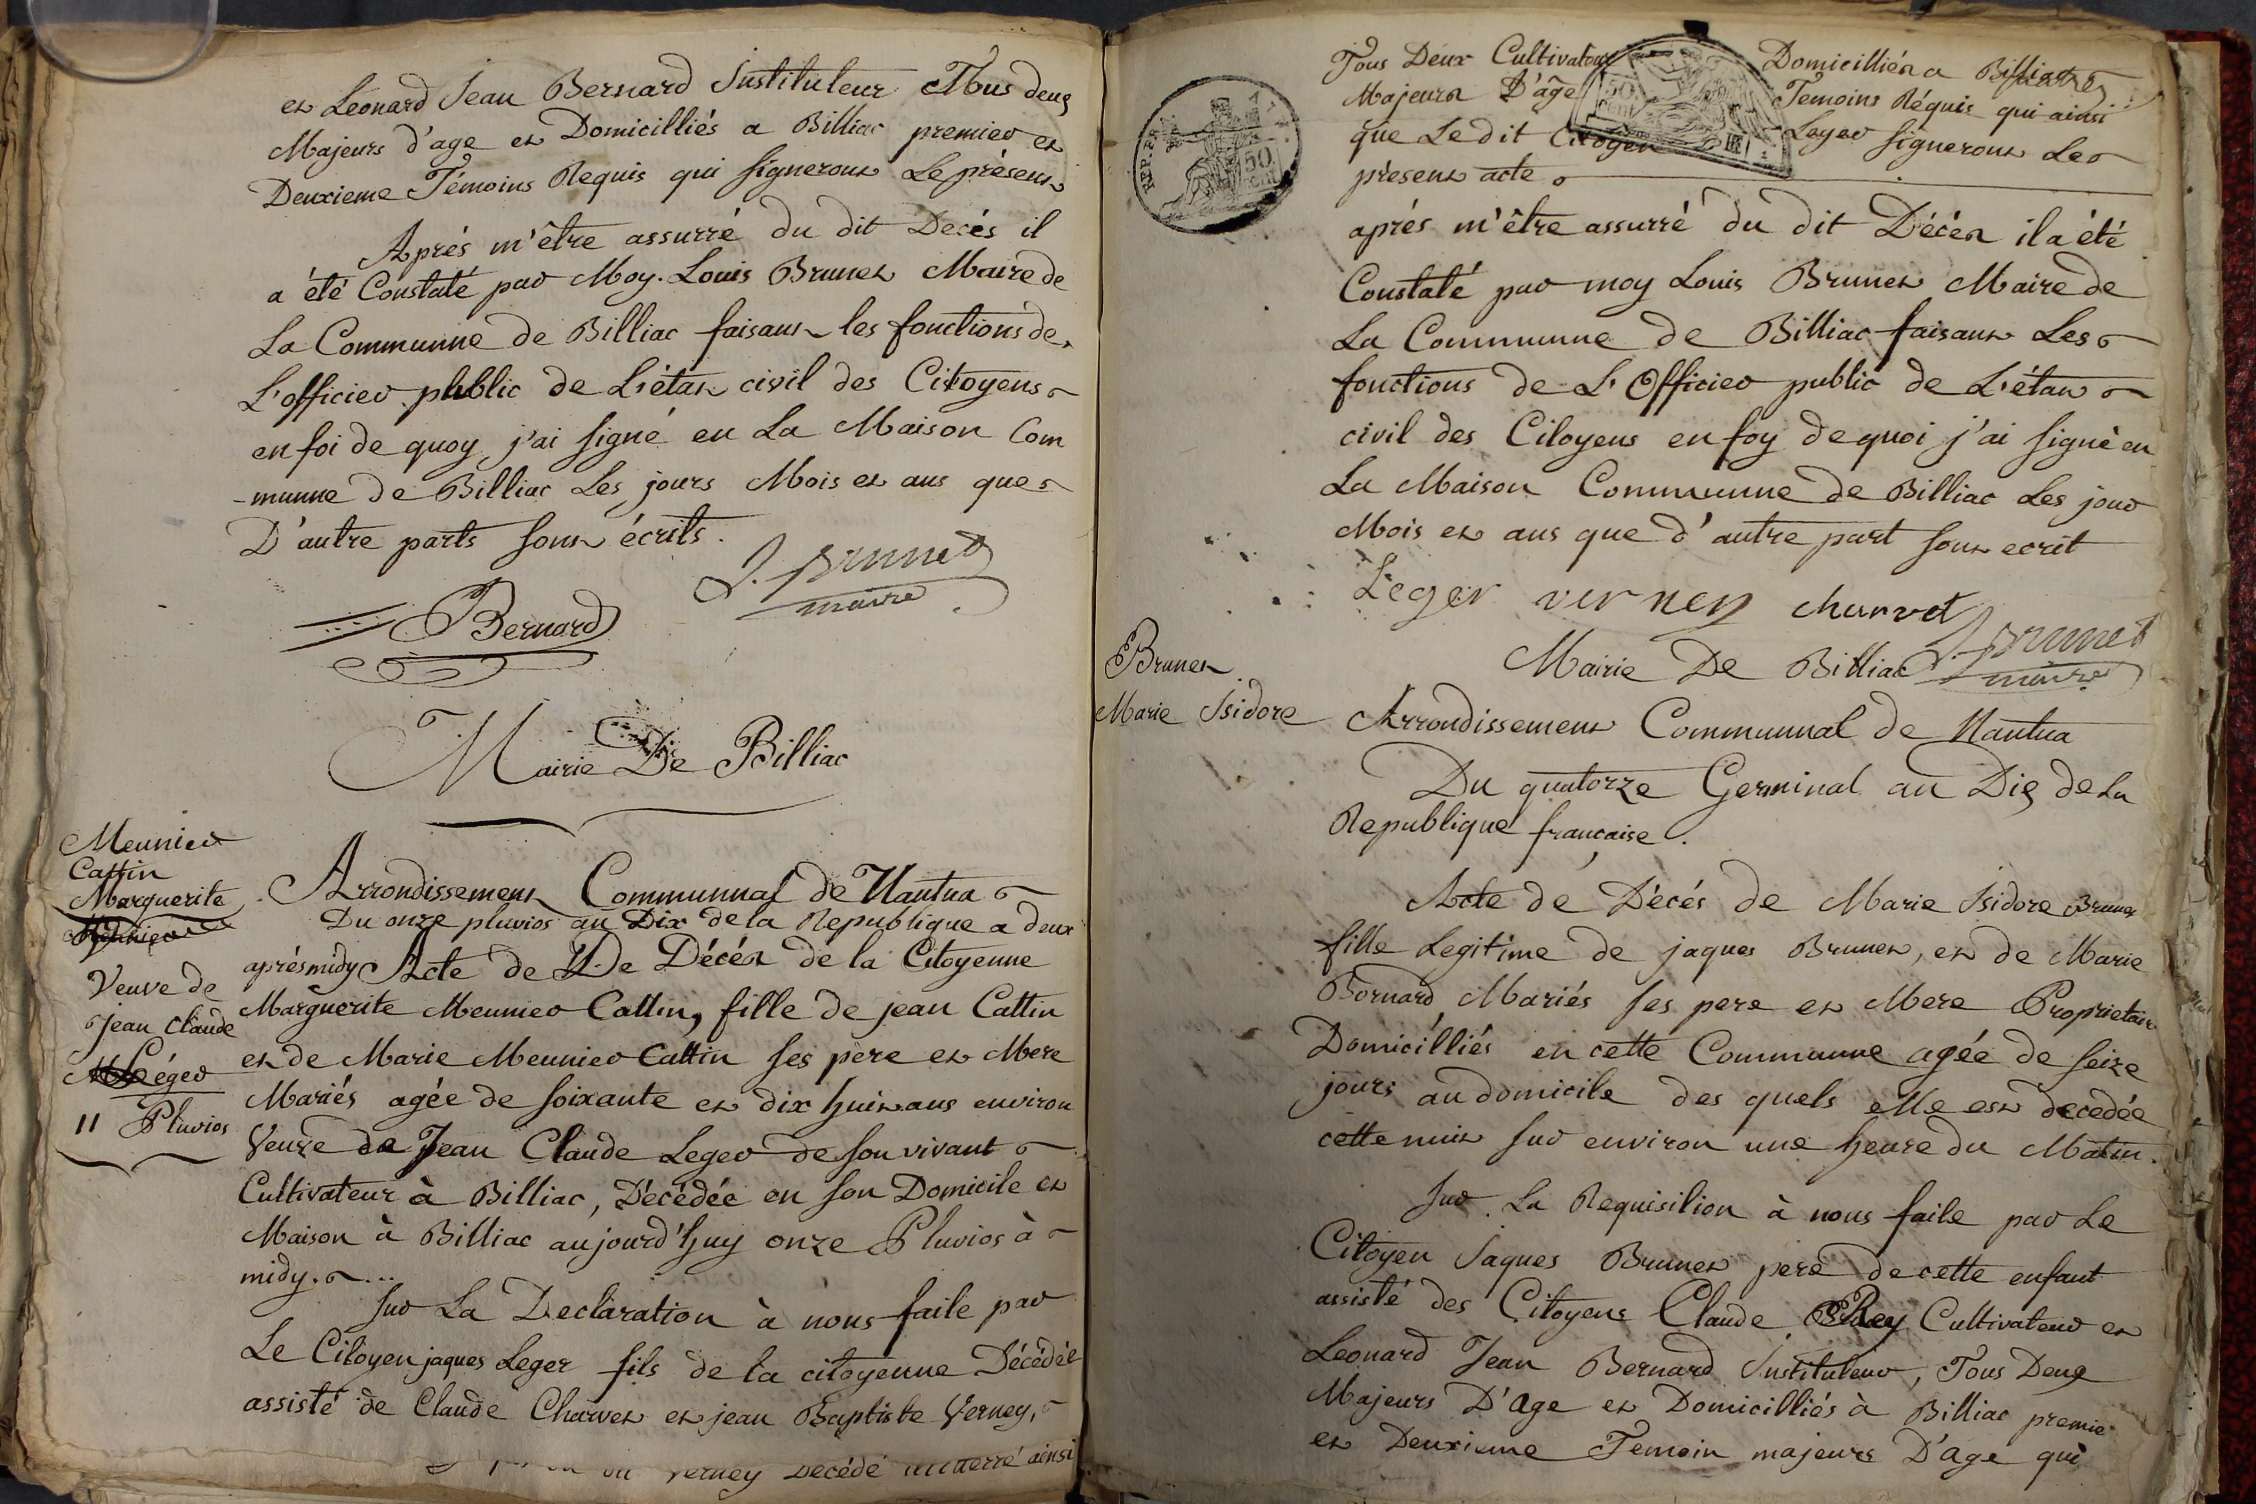 et Léonard Jean Bernard Instituteur Tous deux
Majeurs d'age et Domicilliés a Billiac premier et
Deuxieme Témoins Requis qui signeront Le présent
Aprés m'être assurré du dit Decés il
a été Constaté par Moy. Louis Brunet Maire de
La Communne de Billiac faisant les fonctions de
L'officier public de L'état civil des Citoyens
en foi de quoy j'ai signé en La Maison Com
-munne de Billiac Les jours Mois et ans que
D'autre parts sont écrits.
L. Brunet
maire
Bernard
Mairie De Billiac
Meunier
Cattin
Marguerite
Veuve de
jean Claude
Léger
11 Pluvios
Arrondissement Communnal de Nantua
Du onze pluvios an Dix de la Republique a deux
aprésmidy Acte de De Décés de la Citoyenne
Marguerite Meunier Cattin, fille de jean Cattin
et de Marie Meunier Cattin ses pere et Mere
Mariés agée de soixante et dix huit ans environ
Veuve de Jean Claude Leger de son vivant
Cultivateur à Billiac, Décédée en son Domicile et
Maison à Billiac aujourd'huy onze Pluvios à
midy....
sur La Declaration à nous faite par
Le Citoyen jaques Leger fils de la citoyenne Décédée
assisté de Claude Charvet et jean Baptiste Verney,
Verney Decédé ainsi
Tous Deux Cultivateurs Domicilliés a Billiac
Majeurs D'âge Temoins Réquis qui ainsi
que Le dit Citoyen Leger signeront Le
présent acte
REP. FRA.
50
aprés m'être assurré du dit Décés il a été
Constaté par moy Louis Brunet Maire de
La Communne de Billiac faisant Les
fonctions de L'Officier public de L'état
civil des Citoyens en foy de quoi j'ai signé en
La Maison Communne de Billiac Les jour
Mois et ans que d'autre part sont ecrit
Léger verney charvet
L. Brunet
maire
Brunet
Marie Isidore
Mairie De Billiac
Arrondissement Communnal de Nantua
Du quatorze Germinal an Dix de La
Republique francaise.
Acte de Décés de Marie Isidore Brunet
fille Legitime de jaques Brunet, et de Marie
Bornard Mariés ses pere et Mere Proprietaire
Domicilliés en cette Communne agée de seize
jours au domicile des quels elle est decedée
cette nuit sur environ une heure du Matin.
sur La Requisition à nous faite par Le
Citoyen Jaques Brunet pere de cette enfant
assisté des Citoyens Claude Rey Cultivateur et
Leonard Jean Bernard Instituteur, Tous Deux
Majeurs D'Age et Domicilliés à Billiac premier
et Deuxieme Temoin majeurs D'Age qui